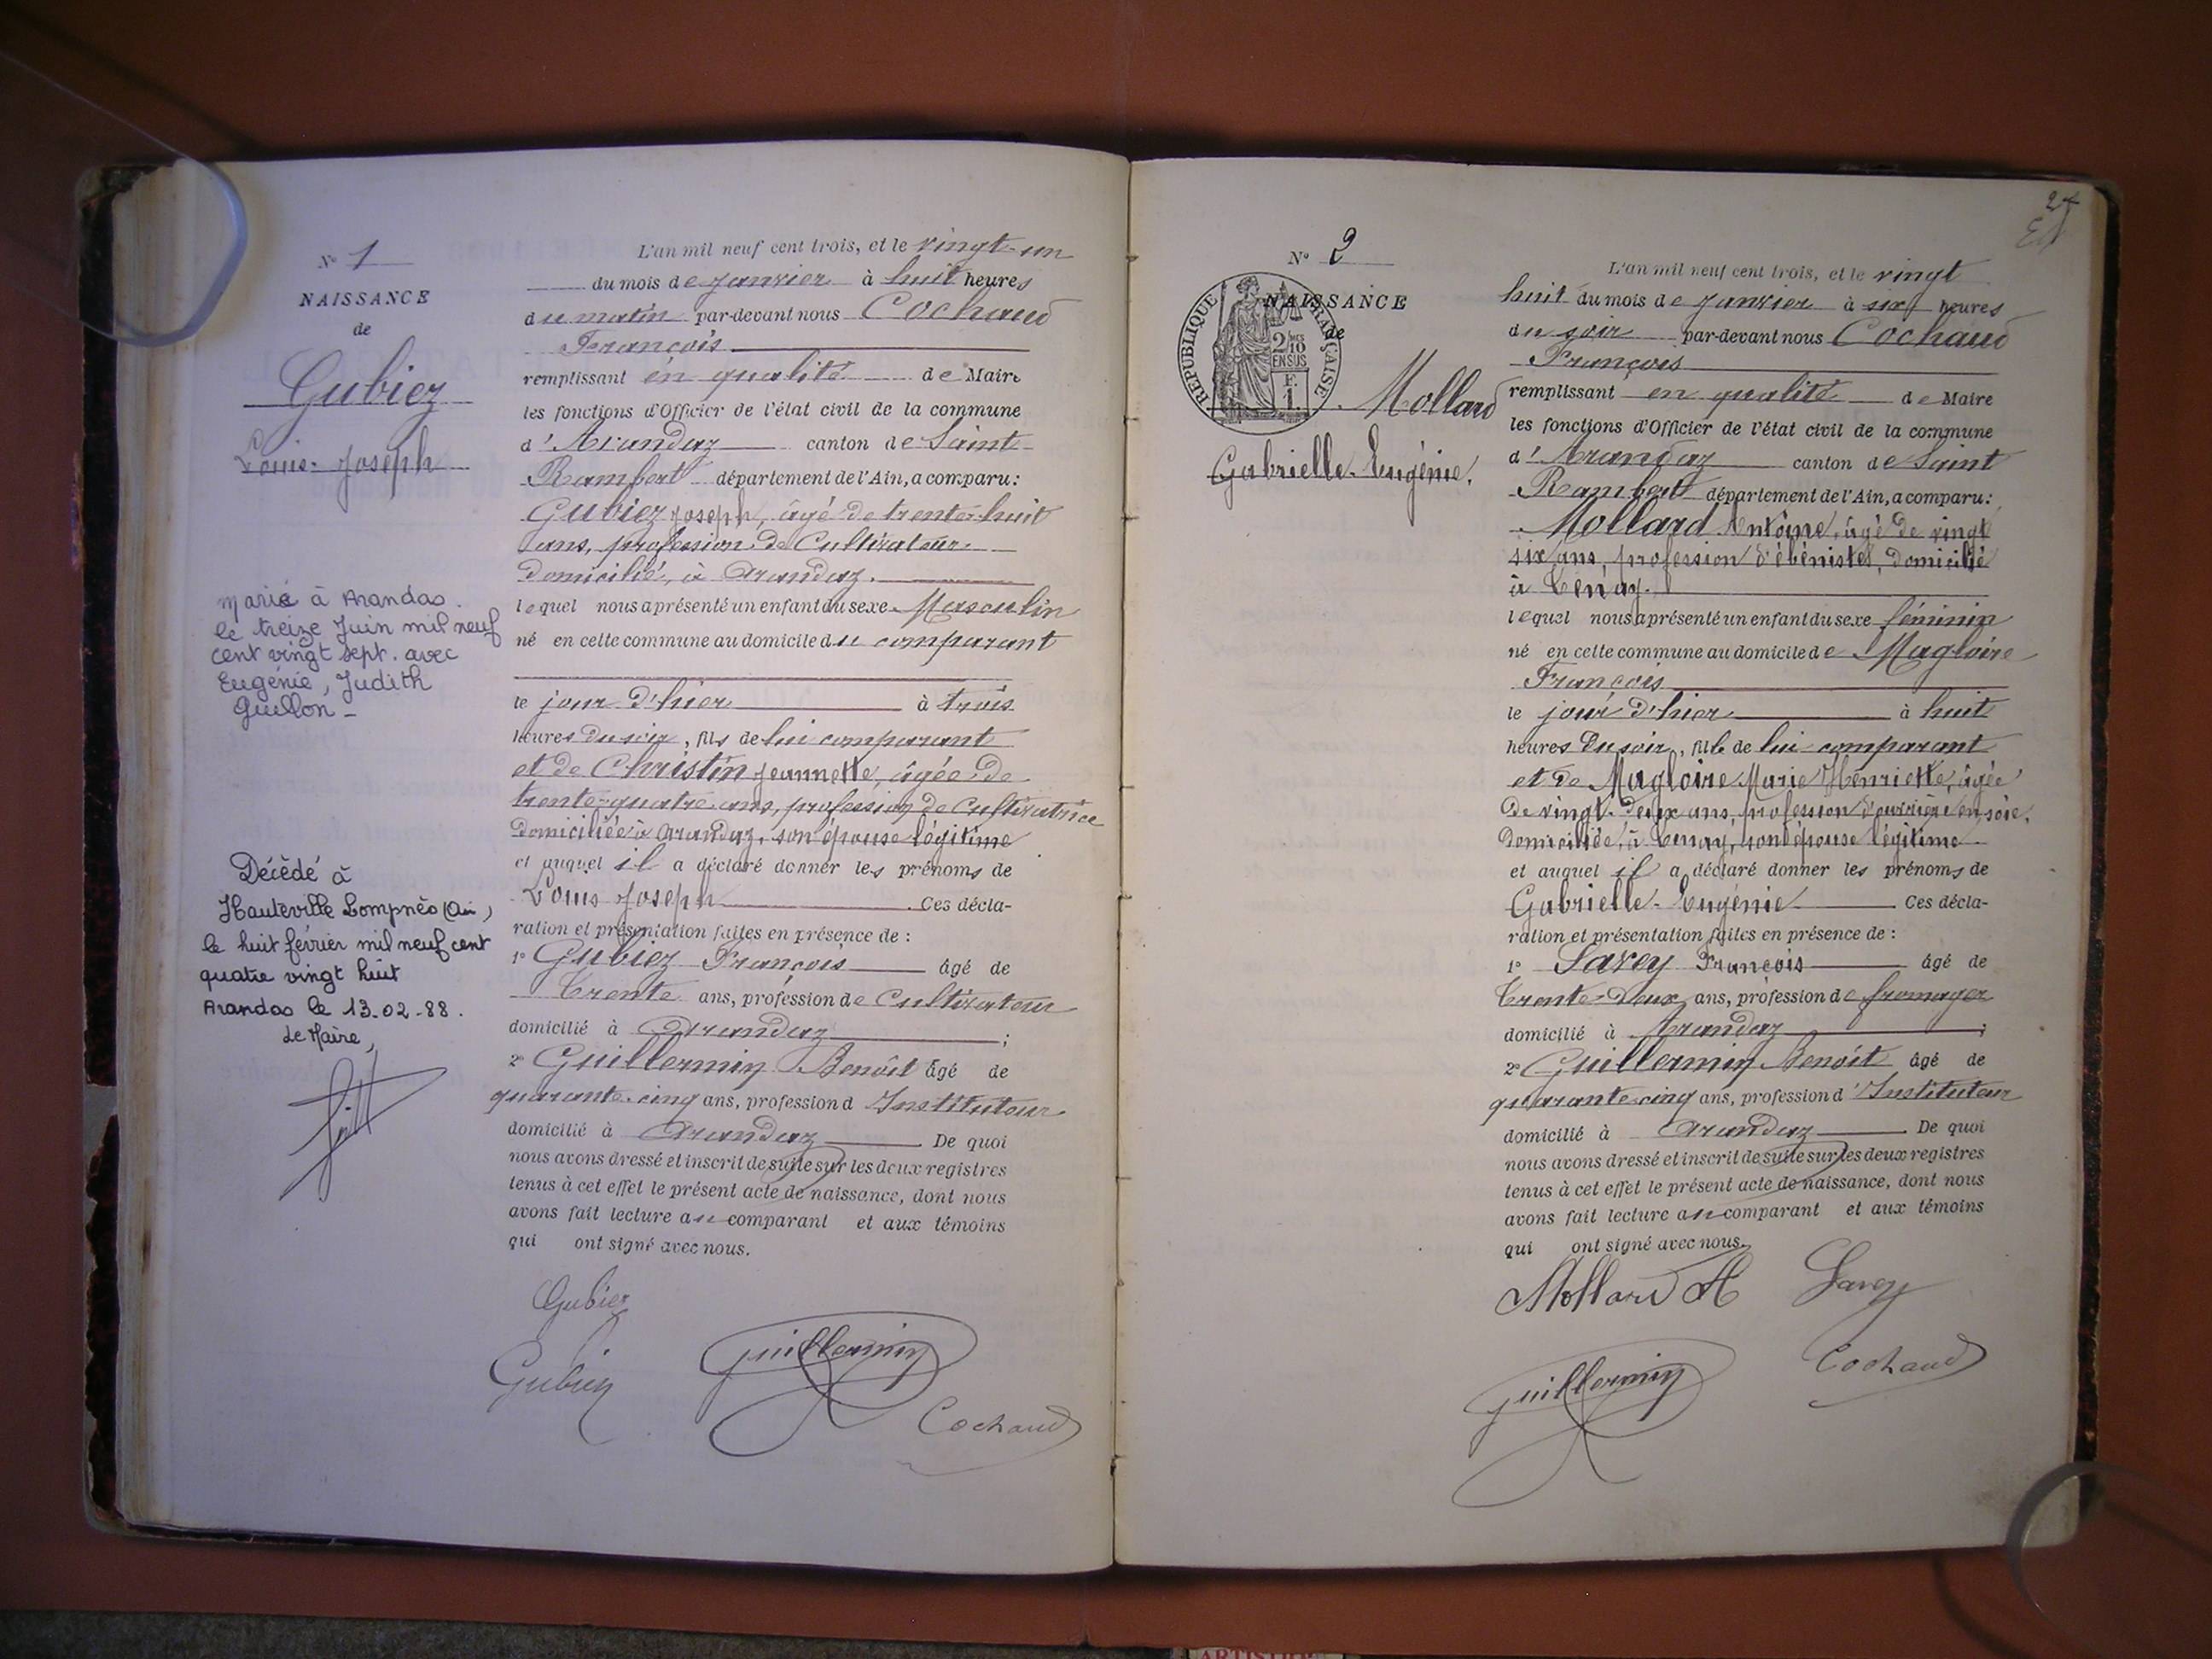 N° 1
NAISSANCE
de
Gubiez
Louis-Joseph
marié à Arandas.
le treize Juin mil neuf
cent vingt sept. avec
Eugénie, Judith
Guillon-
Décédé à
Hauteville Lompnès (Ain)
le huit février mil neuf cent
quatre vingt huit
Arandas le 13-02-88.
Le Maire,
L'an mil neuf cent trois, et le vingt-un
du mois de Janvier à huit heures
du matin par-devant nous Cochaud
François
remplissant en qualité de Maire
les fonctions d'Officier de l'état civil de la commune
d'Arandaz canton de Saint-
Rambert département de l'Ain, a comparu:
Gubiez Joseph, âgé de trente-huit
ans, profession de Cultivateur
domicilié, à Arandaz.
lequel nous a présenté un enfant du sexe Masculin
né en cette commune au domicile du comparant
le jour d'hier à trois
heures du soir, fils de lui comparant
et de Christin Jeannette, âgée de
trente-quatre ans, profession de Cultivatrice
domiciliée à Arandaz, son épouse légitime
et auquel il a déclaré donner les prénoms de
Louis Joseph Ces décla-
ration et présentation faites en présence de :
1° Gubiez François âgé de
Trente ans, profession de Cultivateur
domicilié à Arandaz ;
2° Guillermin Benoît âgé de
quarante-cinq ans, profession d Instituteur
domicilié à Arandaz De quoi
nous avons dressé et inscrit de suite sur les deux registres
tenus à cet effet le présent acte de naissance, dont nous
avons fait lecture au comparant et aux témoins
qui ont signé avec nous.
Gubiez
Gubiez Guillermin
Cochaud
24
N° 2
NAISSANCE
de
RÉPUBLIQUE FRANÇAISE
2/10
EN SUS
F.
1.
Mollard
Gabrielle-Eugénie.
L'an mil neuf cent trois, et le vingt
huit du mois de Janvier à six heures
du soir par-devant nous Cochaud
François
remplissant en qualité de Maire
les fonctions d'Officier de l'état civil de la commune
d'Arandaz canton de Saint
Rambert département de l'Ain, a comparu:
Mollard Antoine, âgé de vingt
six ans, profession d'ébéniste, domicilié
à Tenay.
lequel nous a présenté un enfant du sexe féminin
né en cette commune au domicile de Magloire
François
le jour d'hier à huit
heures du soir, fille de lui comparant
et de Magloire Marie Henriette, âgée
de vingt-deux ans, profession d'ouvrière en soie,
domiciliée, à Tenay, son épouse légitime
et auquel il a déclaré donner les prénoms de
Gabrielle-Eugénie Ces décla-
ration et présentation faites en présence de :
1° Savey François âgé de
Trente-deux ans, profession de fromager
domicilié à Arandaz ;
2° Guillermin Benoît âgé de
quarante-cinq ans, profession d'Instituteur
domicilié à Arandaz De quoi
nous avons dressé et inscrit de suite sur les deux registres
tenus à cet effet le présent acte de naissance, dont nous
avons fait lecture au comparant et aux témoins
qui ont signé avec nous.
Mollard A Savey
Guillermin Cochaud